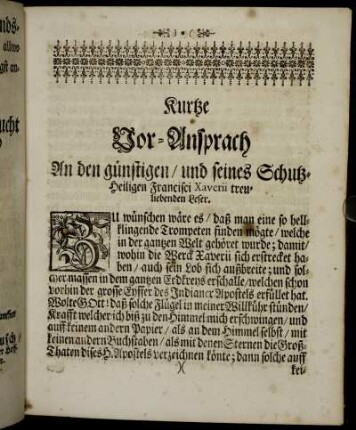 nds-
allwo
gst an-
ucht
Kurtze
Vor-Ansprach
An den günstigen / und seines Schutz-
Heiligen Francisci Xaverii treu-
liebenden Leser.
ZU wünschen wäre es / daß man eine so hell-
klingende Trompeten finden mögte / welche
in der gantzen Welt gehöret wurde; damit /
wohin die Werck Xaverii sich erstrecket ha-
ben / auch sein Lob sich außbreite; und sol-
cher massen in dem gantzen Erdkreyß erschalle / welchen schon
vorhin der grosse Eyffer des Indianer Apostels erfüllet hat.
Wolte GOtt! daß solche Flügel in meiner Willkuhr stünden /
Krafft welcher ich biß zu den Himmel mich erschwingen / und
auff keinem andern Papier / als an dem Himmel selbst / mit
keinen andern Buchstaben / als mit denen Sternen die Groß-
Thaten dises H. Apostels verzeichnen könte; dann solche auff
)( kei-